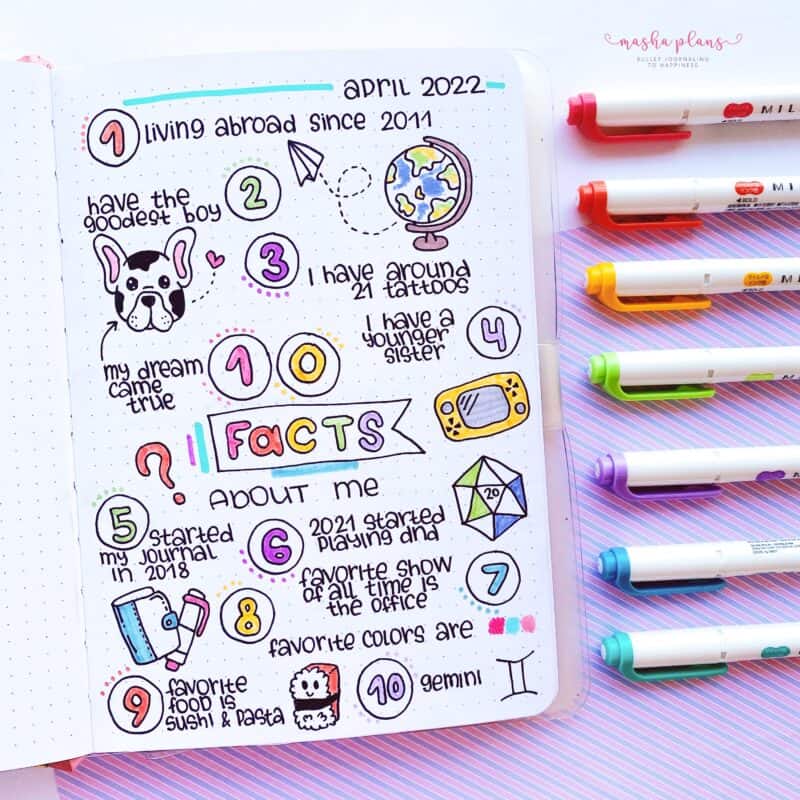 masha plans
BULLET JOURNALING
TO HAPPINESS
april 2022
1 living abroad since 2011
have the
goodest boy
2
3 I have around
21 tattoos
I have a
younger
sister
4
my dream
came
true
10
FaCTS
?
ABOUT ME
20
5 started
my journal
in 2018
6 2021 started
playing dnd
favorite show
of all time is
the office
7
8 favorite colors are
9 favorite
food is
sushi & pasta
10 gemini
MIL
MI
MI
M